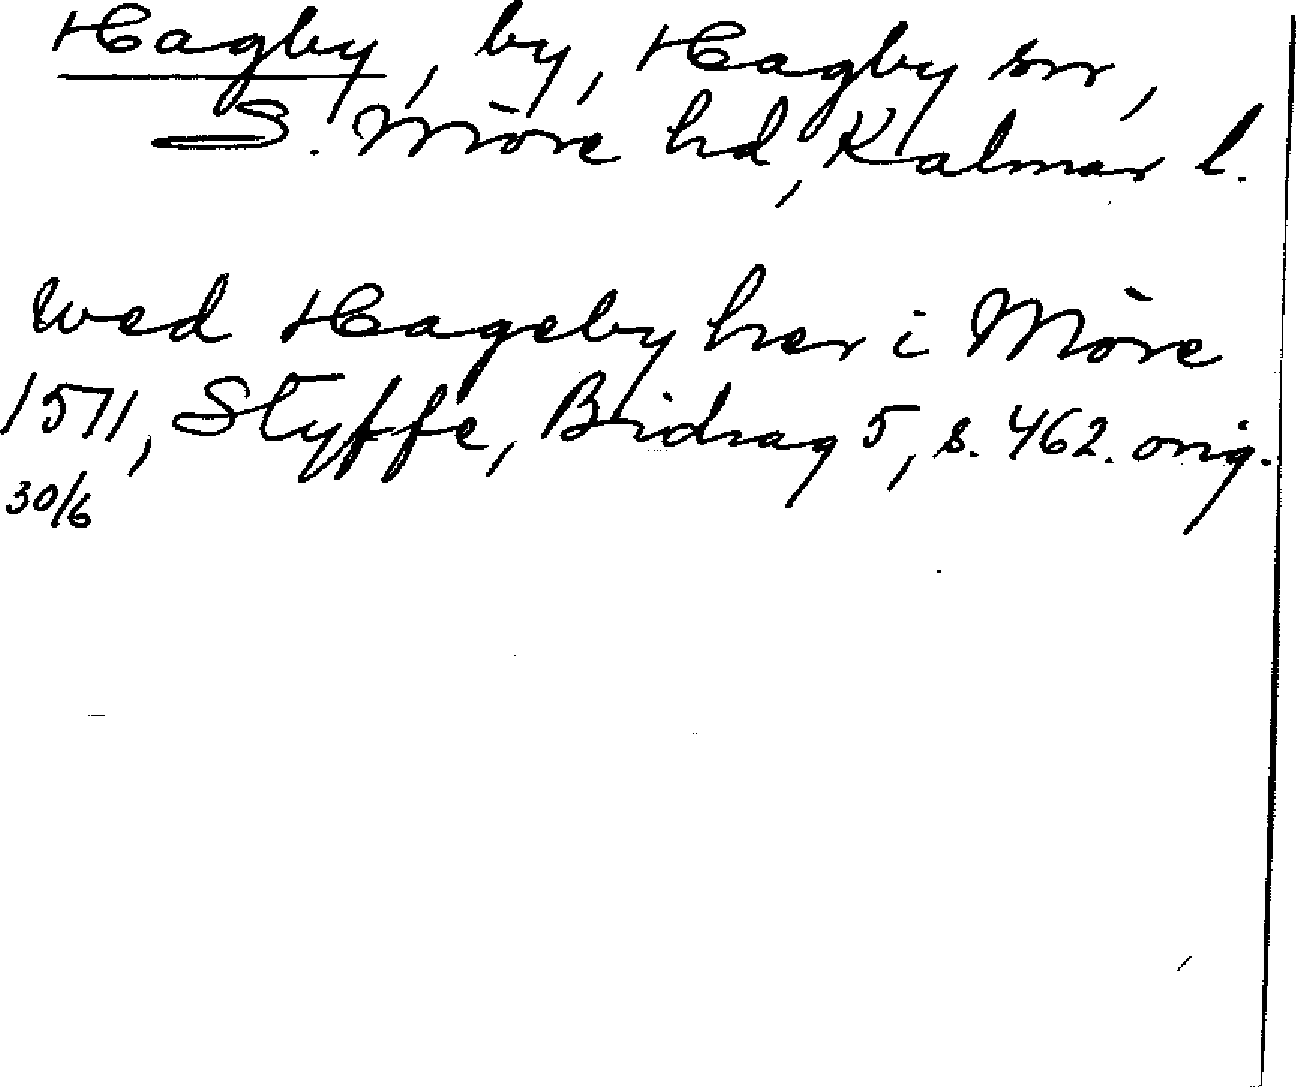 Hagby, by, Hagby sn,
S. Möre hd, Kalmar l.
wed Hageby her i Möre
1511, Styffe, Bidrag 5, s. 462. orig.
30/6